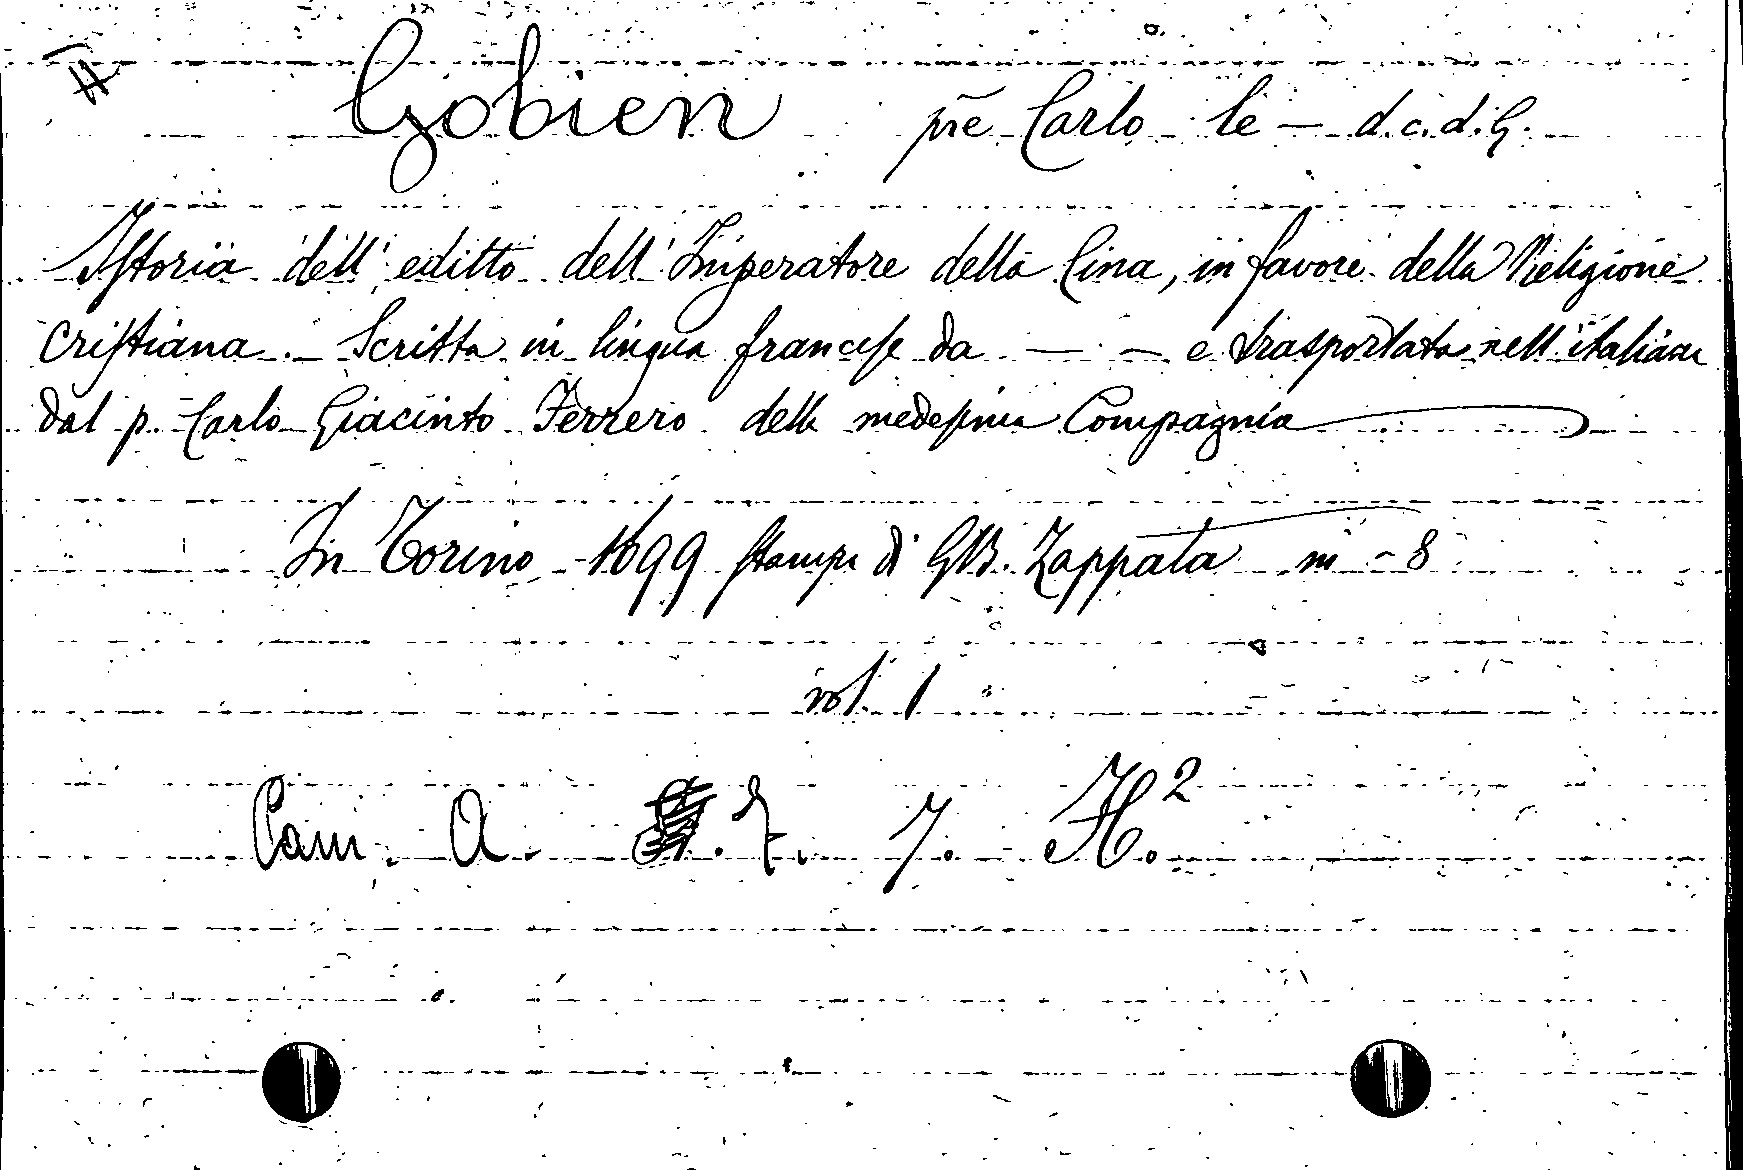 # Gobien prē Carlo le — d. c. d. G.
Istoria dell' editto dell' Imperatore della Cina, in favore della Religione
Cristiana. — Scritta in lingua francese da — — e trasportata nell' italiana
dal p. Carlo Giacinto Ferrero della medesima Compagnia
In Torino 1699 stampa di GB. Zappata in - 8
vol. 1
Cam. A. Z. 7. H.²